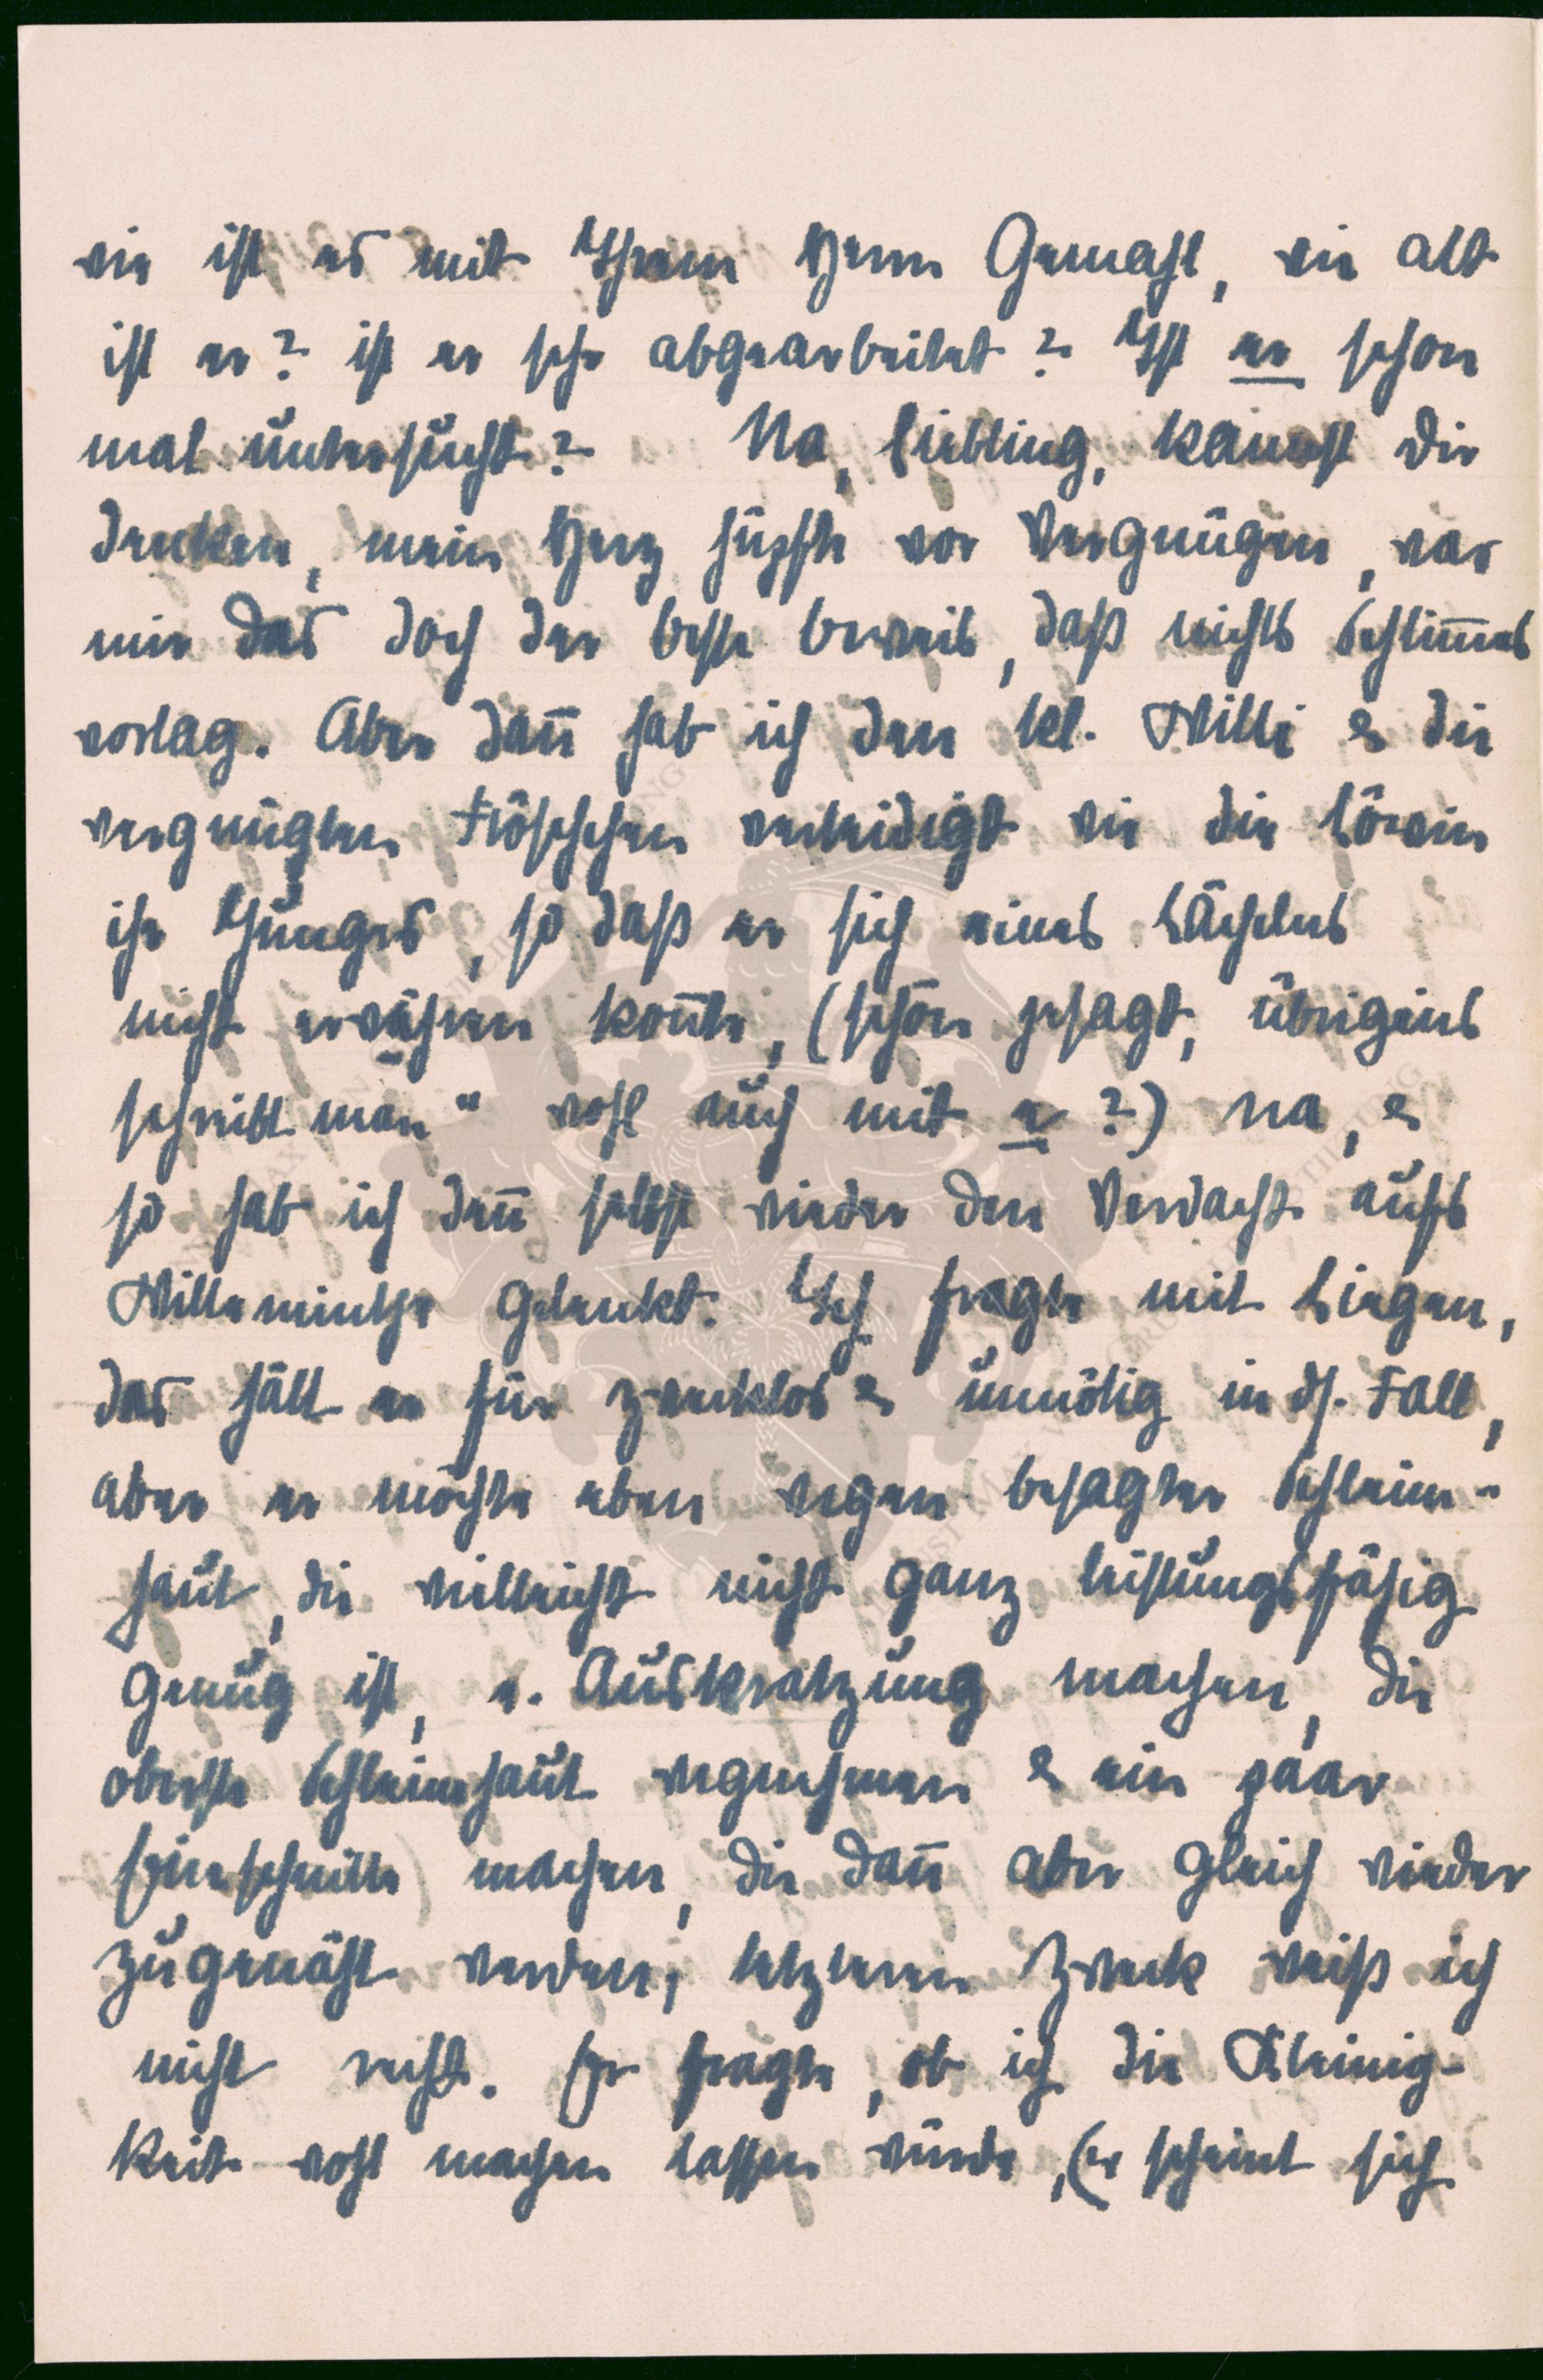 wie ist es mit Ihrem Herrn Gemahl, wie alt
ist er? ist er sehr abgearbeitet? Ist er schon
mal untersucht? Na, Liebling, kannst Dir
denken, mein Herz hüpfte vor Vergnügen, war
mir das doch der beste beweis, daß nichts Schlim̅es
vorlag. Aber dan̅ hab ich den kl. Willi & die
vergnügten Fröschchen verteidigt wie die Löwin
ihr Junges, so daß er sich eines Lächelns
nicht erwähren kon̅te, (schön gesagt, übrigens
schreibt man" wohl auch mit e?) na, &
so hab ich den̅ selbst wieder den Verdacht aufs
Willemintje gelenkt. Ich fragte mit Liegen,
das hält er für zwecklos & unnötig in ds. Fall,
aber er möchte eben wegen besagter Schleim-
haut, die vielleicht nicht ganz leistungsfähig
genug ist, e. Auskratzung machen, die
oberste Schleimhaut wegnehmen & ein paar
Einschnitte machen, die dan̅ aber gleich wieder
zugenäht werden; letzteren Zweck weiß ich
nicht recht. Er fragte, ob ich die Kleinig-
keit wohl machen lassen würde, (er scheint sich